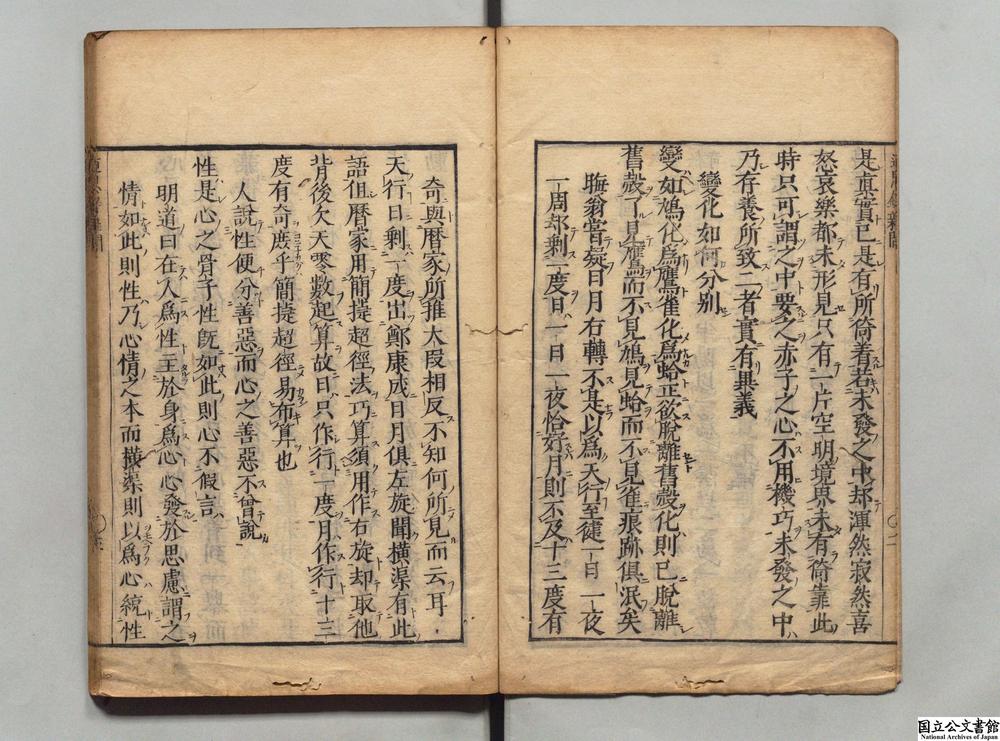 是真實已是有所倚着若未發之中却渾然寂然喜
怒哀樂都未形見只有一片空明境界未有倚靠此
時只可謂之中要之亦子之心不用機巧未發之中
乃存養所致二者實有異義
變化如何分別
變如鳩化爲鷹雀化爲蛤正欲脫離舊殼化則已脫離
舊殼了見鷹而不見鳩見蛤而不見雀痕跡俱泯矣
晦翁嘗疑日月右轉不是以爲天行至徤一日一夜
一周却剩一度日一日一夜恰好月則不及十三度有
奇與曆家所推大段相反不知何所見而云耳
天行日剩一度出鄭康成日月俱左旋聞橫渠有此
語但曆家用簡捷超徑法巧算須用作右旋却取他
背後欠天零數起算故日只作行一度月作行十三
度有奇庶乎簡捷超徑易布算也
人說性便分善惡而心之善惡不曾說
性是心之骨子性旣如此則心不假言
明道曰在人爲性主於身爲心心發於思慮謂之
情如此則性乃心情之本而橫渠則以爲心統性
国立公文書館
National Archives of Japan